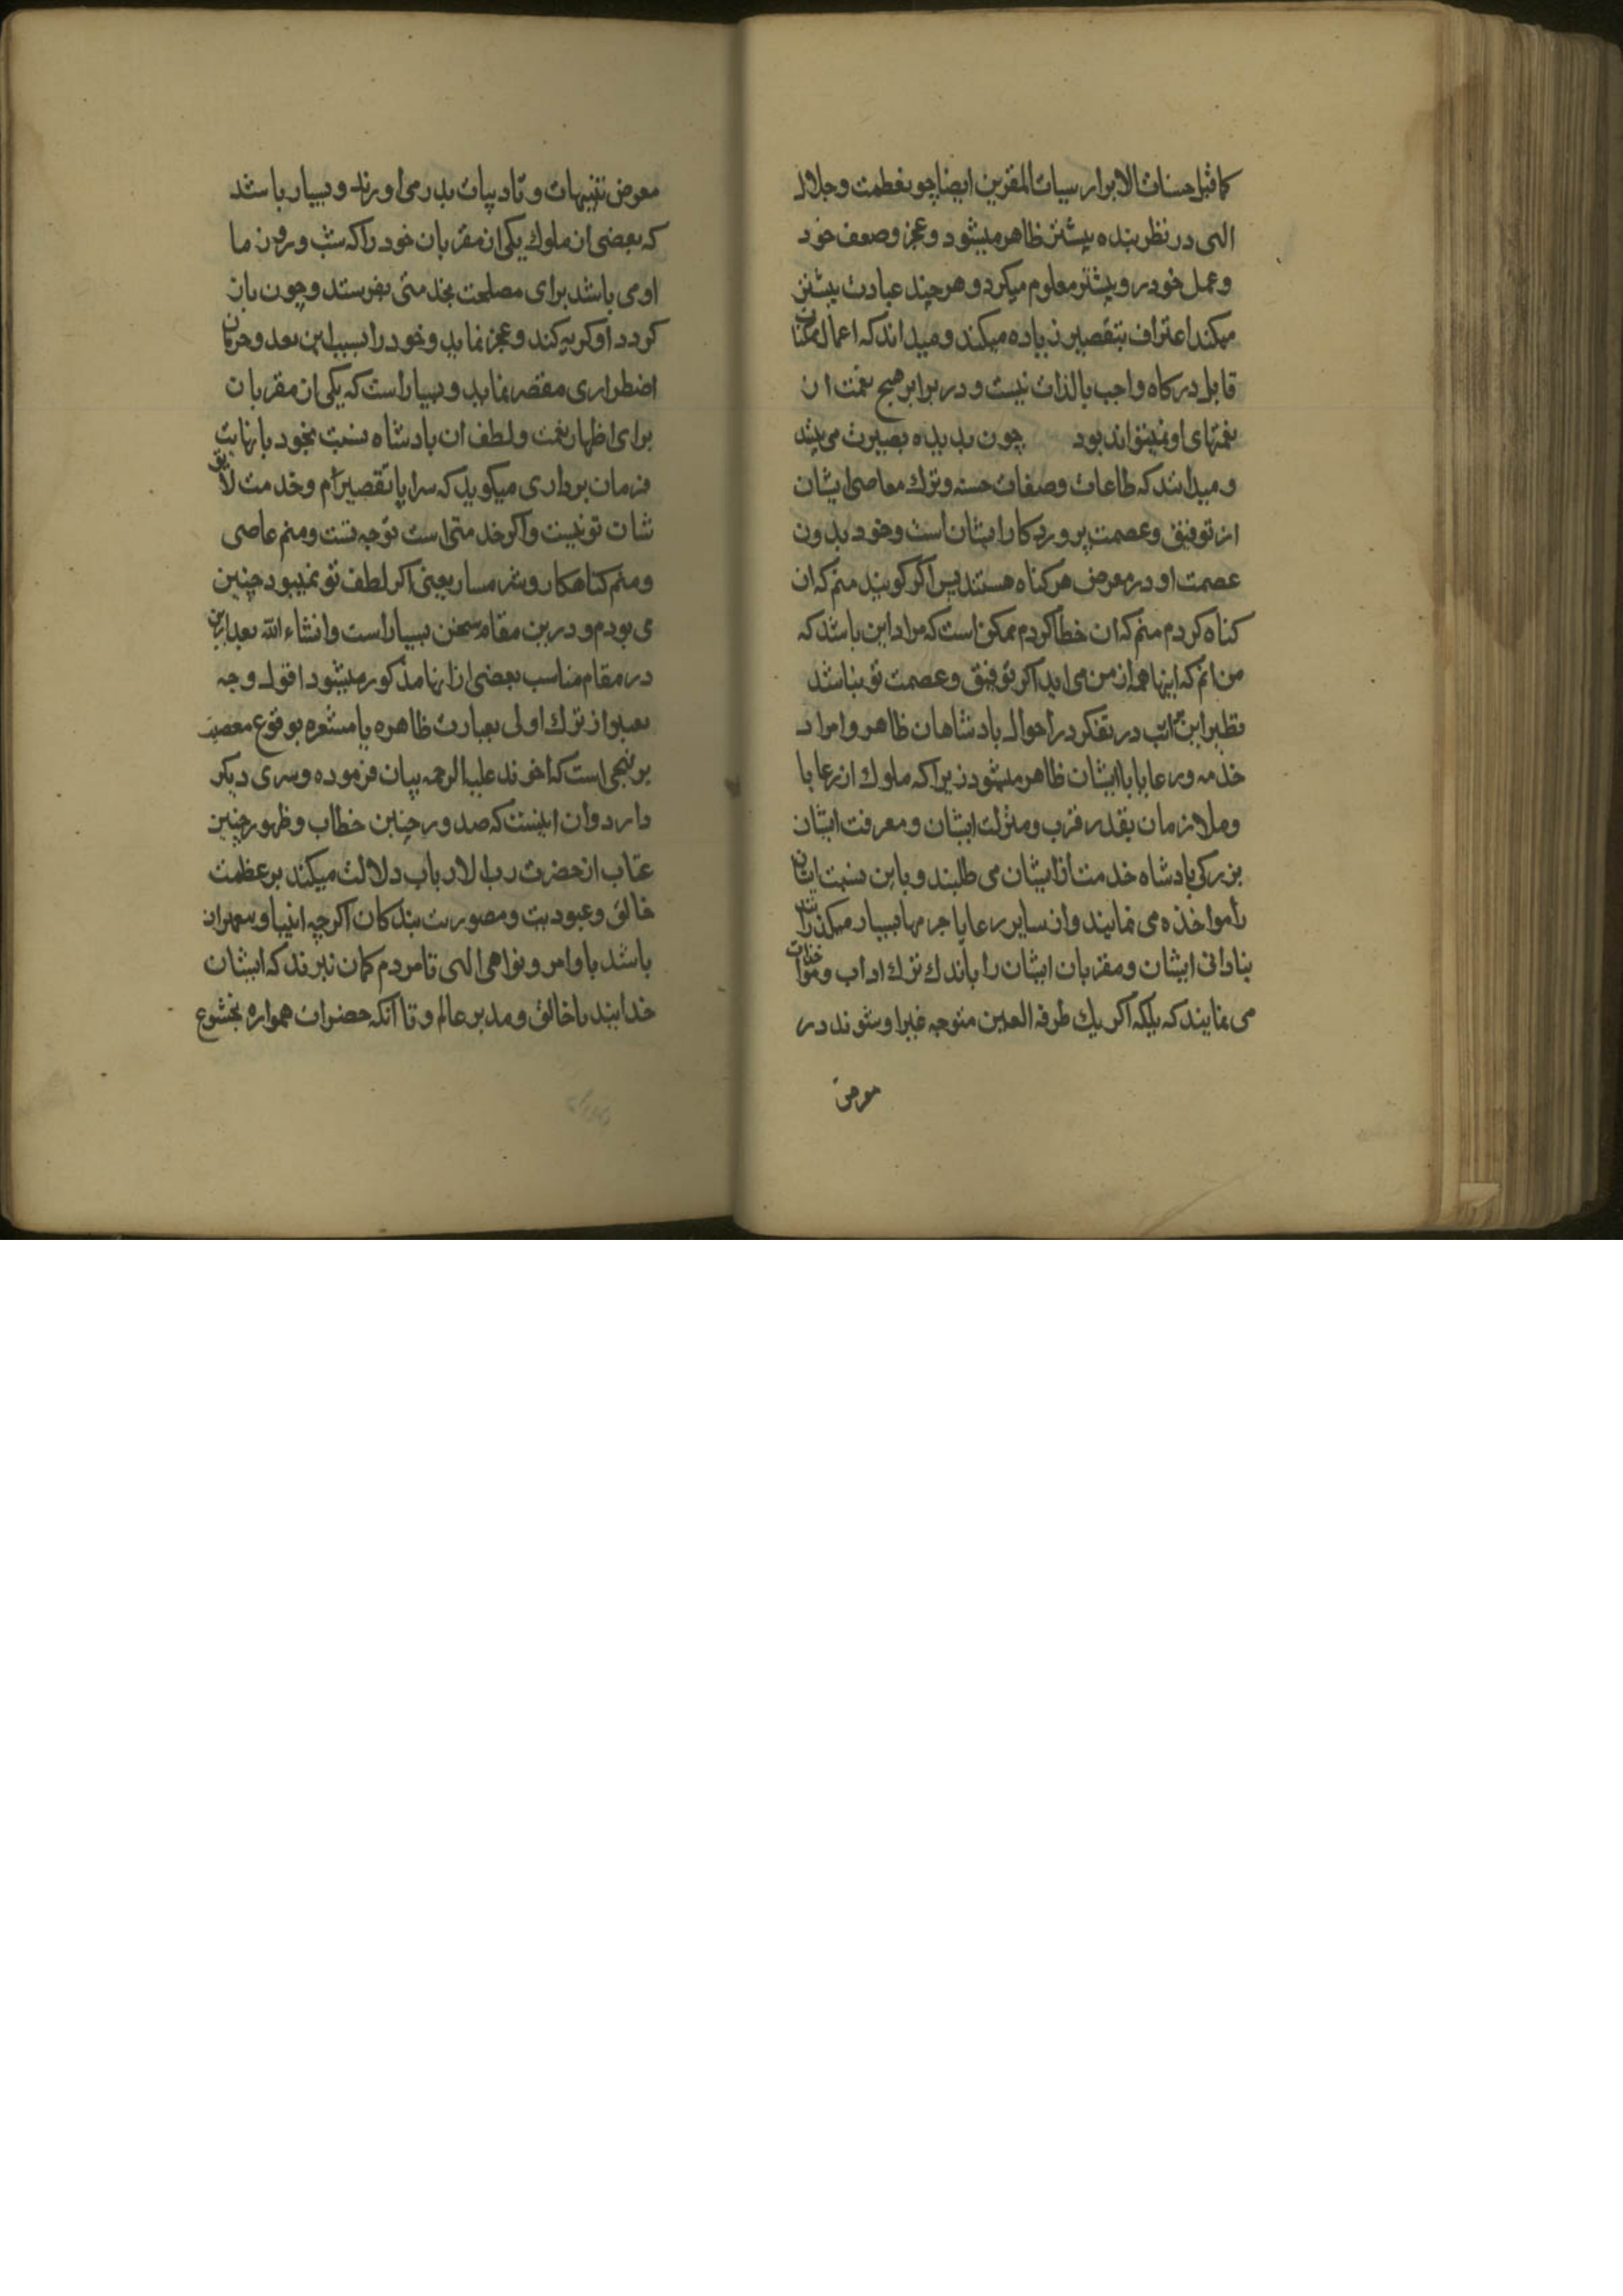 کما قیل حسنات الابرار سیات المقربین ایضا چو بعظمت و جلال
الهی در نظر بنده بیشتر ظاهر میشود و عجز و ضعف خود
و عمل خود در و بیشتر معلوم میکرد و هر چند عبادت بیشتر
میکند اعتراف بتقصیر زیاده میکند و میداند که اعمال ممکنات
قابل درکاه واجب بالذات نیست و در برابر هیچ نعمت از
نعمتهای او نمیتواند بود چون بدیده بصیرت می بیند
و میدانند که طاعات و صفات حسنه و ترک معاصی ایشان
از توفیق و عصمت پروردکار ایشان است و خود بدون
عصمت او در معرض هر کناه هستند پس اکر کویند منم که ان
کناه کردم منم که ان خطا کردم ممکن است که مراد این باشد که
من انم که اینها همه از من می اید اکر توفیق و عصمت تو نباشد
نظیر این مراتب در تفکر در احوال پادشاهان ظاهر و امرا و
خدمه و رعایا با ایشان ظاهر میشود زیرا که ملوک از رعایا
و ملازمان بقدر قرب و منزلت ایشان و معرفت ایشان
بزرکی پادشاه خدمت از ایشان می طلبند و باین نسبت ایشان
را مواخذه می نمایند و از سایر رعایا جرمها بسیار میکذرانند
بنادانی ایشان و مقربان ایشان را باندک ترک اداب و مواخذات
می نمایند که بلکه اکر یک طرفه العین متوجه غیر او شوند در
معرض
معرض تنبیهات و تادیبات بدر می اورند و بسیار باشد
که بعضی از ملوک یکی از مقربان خود را که شب و روز ن ما
او می باشد برای مصلحت بخدمتی بفرستد و چون باز
کردد او کریه کند و عجز نماید و خود را بسبب این بعد و حرمان
اضطراری مقصر نماید و بسیار است که یکی از مقربان
برای اظهار نعمت و لطف ان پادشاه نسبت بخود با نهایت
فرمان برداری میکوید که سراپا تقصیرام و خدمت لایق
شان تو نیست و اکر خدمتی است توجه تست و منم عاصی
و منم کناهکار و شرمسار یعنی اکر لطف تو نمیبود چنین
می بودم و درین مقام سخن بسیار است و انشاء الله بعد ازین
در مقام مناسب بعضی از انها مذکور میشود اقول وجه
تعبیر از ترک اولی بعبارت ظاهره یا مشعره بوقوع معصیت
بر نهجی است که اخوند علیه الرحمه بیان فرموده و سری دیکر
دارد و ان اینست که صدور چنین خطاب و ظهور چنین
عتاب از حضرت رب الارباب دلالت میکند بر عظمت
خالق و عبودیت و مقهوریت بندکان اکرچه انبیا و پیغمبران
باشد باوامر و نواهی الهی تا مردم کمان نبرند که ایشان
خدایند یا خالق و مدبر عالم و تا انکه حضرات همواره بخشوع